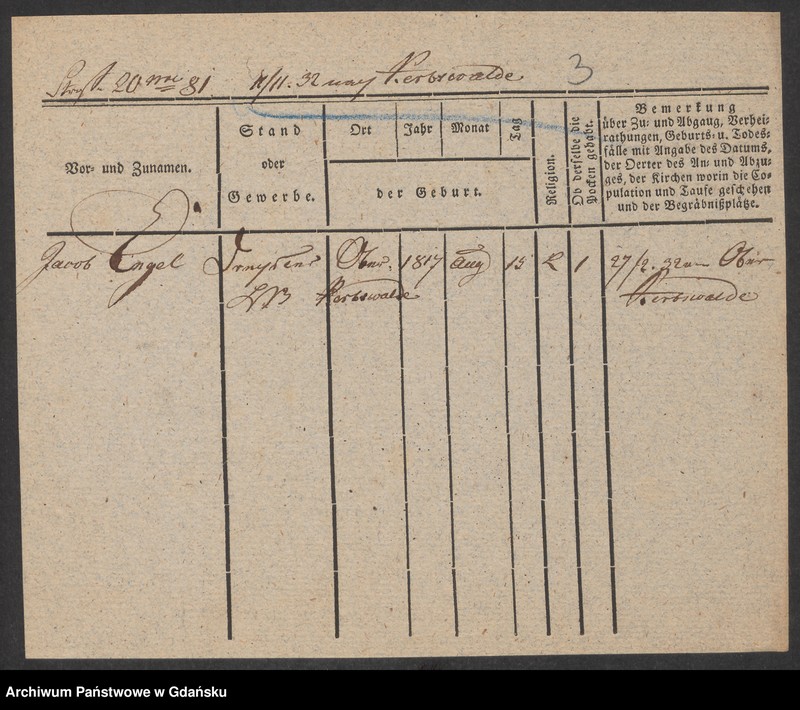 20 81 11/11. 32 nach Kerbswalde 3
Vor- und Zunamen.
Stand
oder
Gewerbe.
Ort Jahr Monat Tag
der Geburt.
Religion.
Ob derselbe die
Pocken gehabt.
Bemerkung
über Zu- und Abgaug, Verhei-
rathungen, Geburts- u. Todes-
fälle mit Angabe des Datums,
der Oerter des An- und Abzu-
ges, der Kirchen worin die Co-
pulation und Taufe geschehen
und der Begräbnißplätze.
Jacob Engel Ober. 1817 Aug 15 1 27/2. 32 Ober
Kerbswalde Kerbswalde
Archiwum Państwowe w Gdańsku